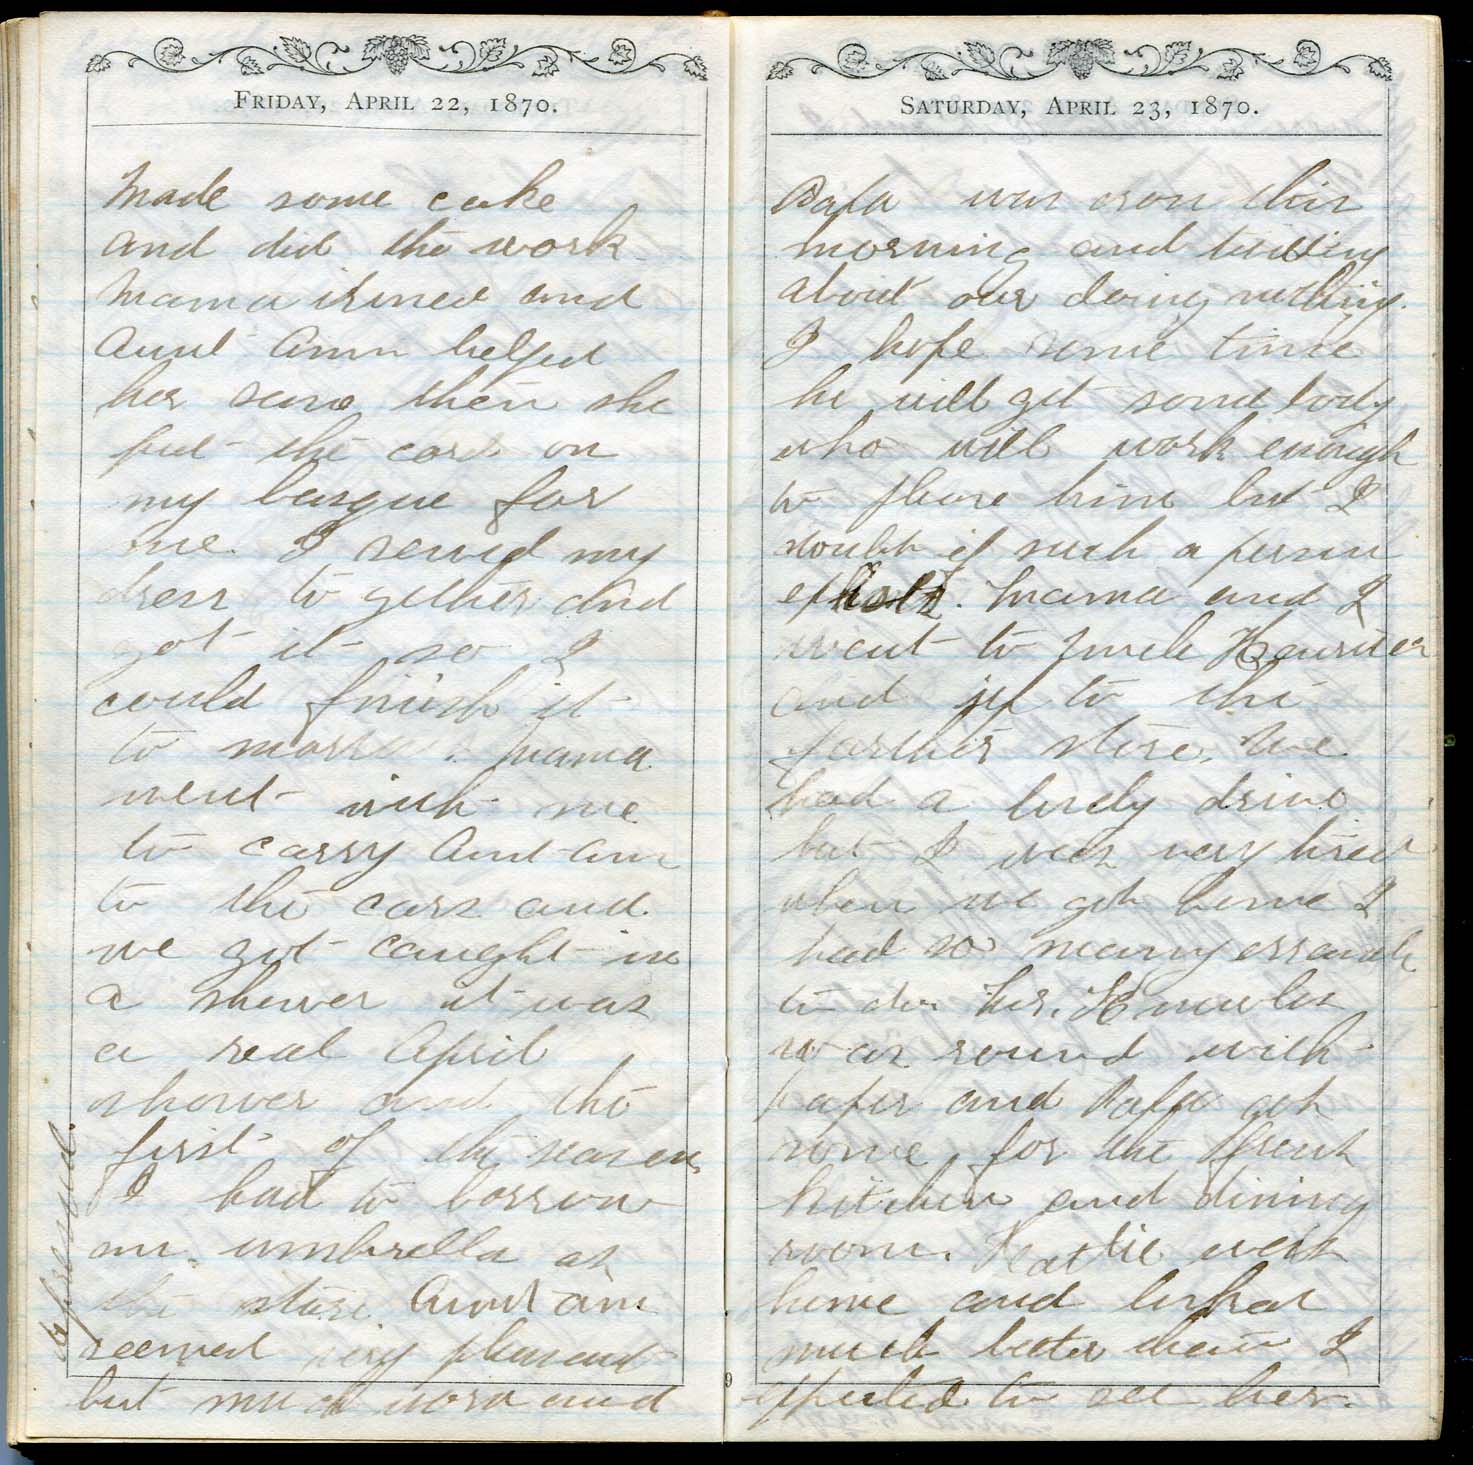 FRIDAY, APRIL 22, 1870.
Made some cake
and did the work
Mama irined and
Aunt Ann helped
her some then she
put the cord on
my basque for
me. I sewed my
dress to gether and
got it so I
could finish it
to morrow. Mama
went with me
to carry Aunt Ann
to the cars and
we got caught in
a shower it was
a real April
shower and the
first of the season
I had to borrow
an umbrella at
the store Aunt Ann
seemed very pleasant
but much worn and
SATURDAY, APRIL 23, 1870.
Papa was cross this
morning and
about our doing nothing.
I hope some time
he will get some body
who will work enough
to please him but I
doubt if such a person
exists. Mama and I
went to Uncle
and up to the
farther store. We
had a lovely drive
but I was very tired
when we got home I
had so many errands
to do. Mr. Knowles
was round with
paper and Papa got
some for the front
kitchen and dining
room. Hattie went
home and looked
much better than I
expected to see her.